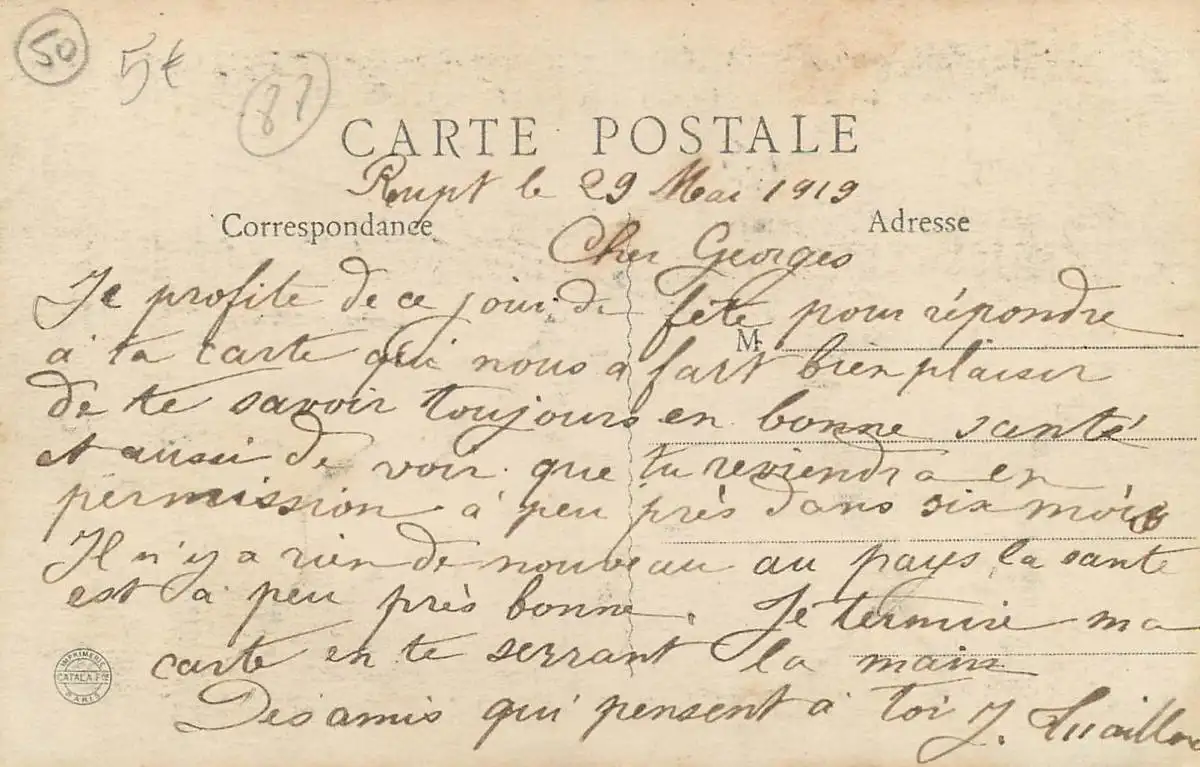 50
5€
CARTE POSTALE
Rupt le 29 Mai 1919
Correspondance
Adresse
Cher Georges
Je profite de ce jour de fête pour répondre
M
à ta carte qui nous a fait bien plaisir
de te savoir toujours en bonne santé
et aussi de voir que tu reviendra en
permission à peu près dans six mois
Il n'y a rien de nouveau au pays la sante
est à peu près bonne. Je termine ma
carte en te serrant la main
Des amis qui pensent à toi J.
IMPRIMERIE
CATALA FRES
PARIS